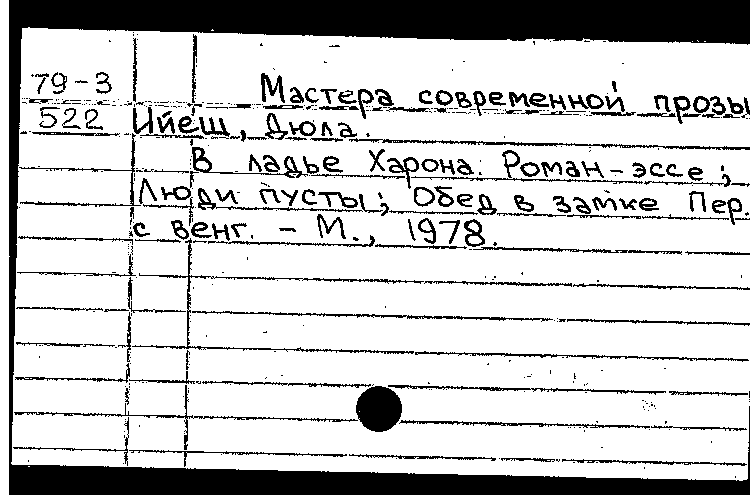 79-3 Мастера современной прозы
522 Ийеш, Дюла.
В ладье Харона. Роман-эссе;
Люди пусты; Обед в замке Пер.
с венг. - М., 1978.